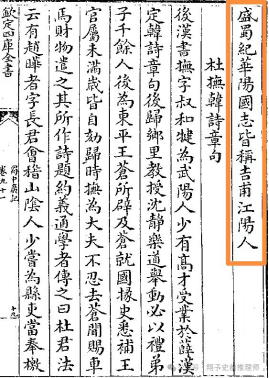 盛蜀紀華陽國志皆稱吉甫江陽人
杜撫韓詩章句
後漢書撫字叔和犍為武陽人少有高才受業於薛漢
定韓詩章句後歸鄉里教授沈靜樂道舉動必以禮弟
子千餘人後為東平王蒼所辟及蒼就國掾史悉補王
官屬未滿歲皆自劾歸時撫為大夫不忍去蒼聞賜車
馬財物遣之其所作詩題約義通學者傳之曰杜君法
云有趙曄者字長君會稽山陰人少嘗為縣吏當奉檄
欽定四庫全書
卷九十一